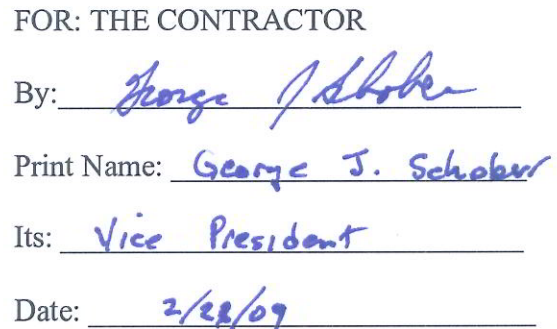 FOR: THE CONTRACTOR
By: George J Schober
Print Name: George J. Schober
Its: Vice President
Date: 2/28/09